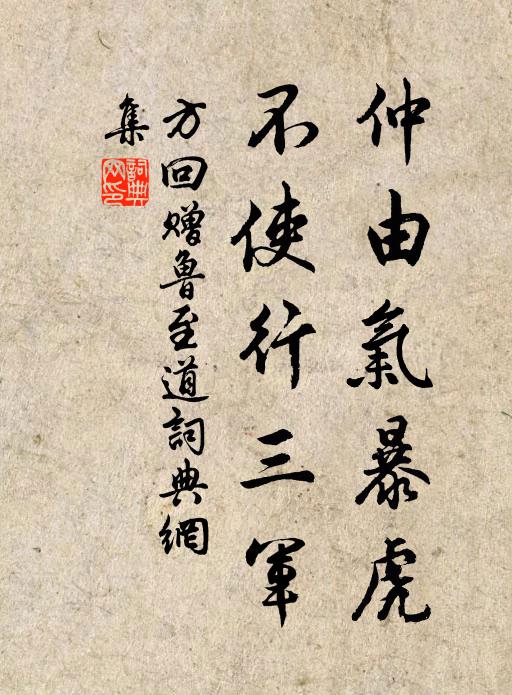 仲由氣暴虎
不使行三軍
方回贈魯至道詞典網
集
詞典
网印